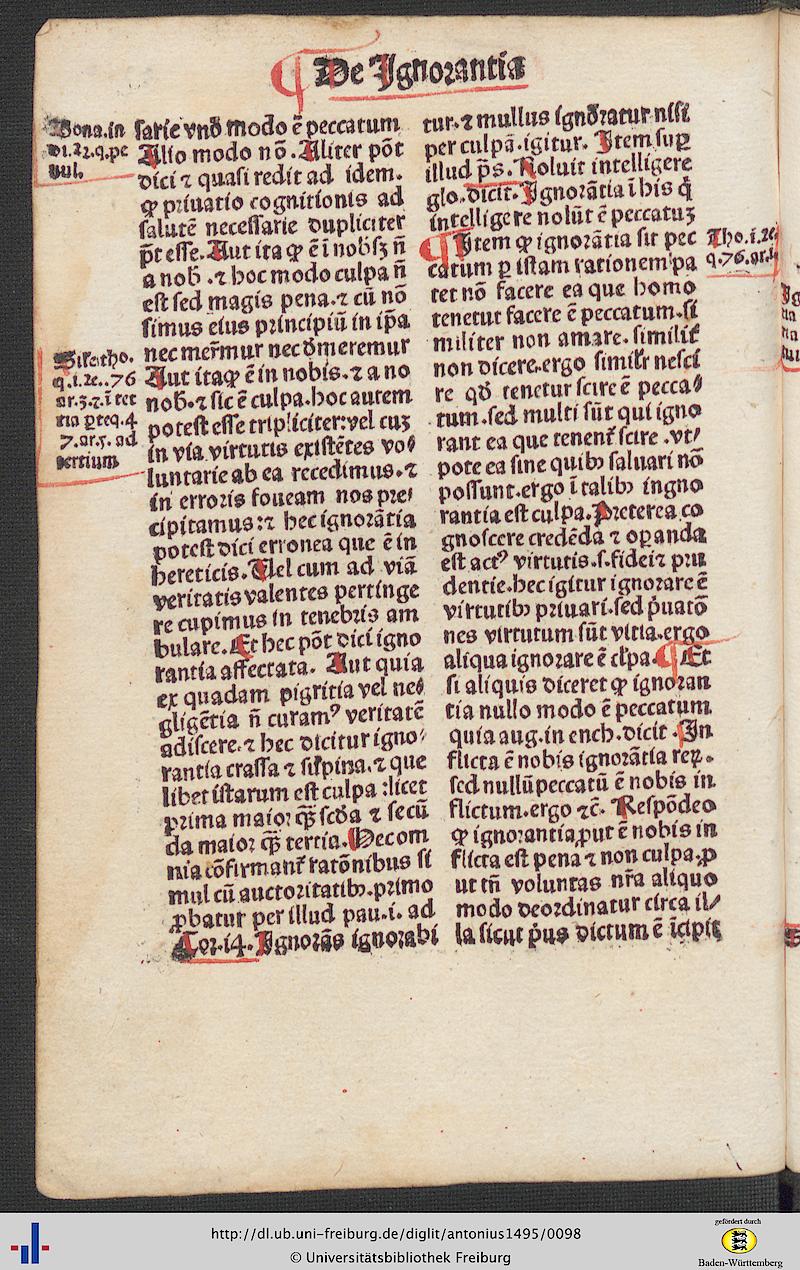 De Ignorantia
Bona.in
di.22.q.pe
nul.
sarie vnō modo ē peccatum
Alio modo nō. Aliter pōt
dici ⁊ quasi redit ad idem.
ꝙ priuatio cognitionis ad
salutē necessarie dupliciter
p̄t esse. Aut ita ꝙ ē ī nobꝫ sꝫ n̄
a nob̄ .⁊ hoc modo culpa n̄
est sed magis pena.⁊ cū nō
simus eius principiū in ip̄a
nec mer̄mur nec dmeremur
Aut itaꝙ ē in nobis.⁊ a no
nob̄.⁊ sic ē culpa.hoc autem
potest esse tripliciter:vel cuꝫ
in via virtutis existētes vo⸗
luntarie ab ea recedimus.⁊
in erroris foueam nos pre⸗
cipitamus:⁊ hec ignorātia
potest dici erronea que ē in
hereticis. Uel cum ad viā
veritatis valentes pertinge
re cupimus in tenebris am
bulare. Et hec pōt dici igno
rantia affectata. Aut quia
ex quadam pigritia vel ne⸗
gligētia n̄ curamꝰ veritatē
adiscere.⁊ hec dicitur igno⸗
rantia crassa ⁊ sup̄ina.⁊ que
libet istarum est culpa :licet
prima maior qꝫ̄ scd̄a ⁊ secū
da maior qꝫ̄ tertia. Hec om
nia cōfirmant̄ ratōnibus si
mul cū auctoritatibꝫ.primo
ꝓbatur per illud pau.i. ad
Cor.14. Ignorās ignorabi
tho.
q.1.2e..76
ar.3.⁊.ī ter
tia ꝑte q.4
7.ar.5. ad
tertium
tur.⁊ nullus ignōratur nisi
per culpā.igitur. Item suꝑ
illud p̄s. Noluit intelligere
glo.dicit. Ignorātia ī his q̄
intelligere nolūt ē peccatuꝫ
¶ Item ꝙ ignorātia sit pec
catum ꝑ istam rationem pa
tet nō facere ea que homo
tenetur facere ē peccatum.si
militer non amare. similit̄
non dicere.ergo simil'r nesci
re qd̄ tenetur scire ē pecca⸗
tum.sed multi sūt qui igno
rant ea que tenent̄ scire .vt⸗
pote ea sine quibꝫ saluari nō
possunt.ergo ī talibꝫ ingno
rantia est culpa. Preterea co
gnoscere credēda ⁊ oꝑanda
est actꝰ virtutis.s.fidei ⁊ pru
dentie.hec igitur ignorare ē
virtutibꝫ priuari.sed p̄uatō
nes virtutum sūt vitia.ergo
aliqua ignorare ē cl̄pa. ¶ Et
si aliquis diceret ꝙ ignoran
tia nullo modo ē peccatum
quia aug.in ench.dicit . In
flicta ē nobis ignorātia reꝝ.
sed nullū peccatū ē nobis in
flictum.ergo ⁊c̄. Respōdeo
ꝙ ignorantia,put ē nobis in
flicta est pena ⁊ non culpa.ꝓ
ut tn̄ voluntas nr̄a aliquo
modo deordinatur circa il⸗
la sicut p̄us dictum ē īcipit
Tho.i.2e
q.76.ar.
http://dl.ub.uni-freiburg.de/diglit/antonius1495/0098
© Universitätsbibliothek Freiburg
gefördert durch
Baden-Württemberg